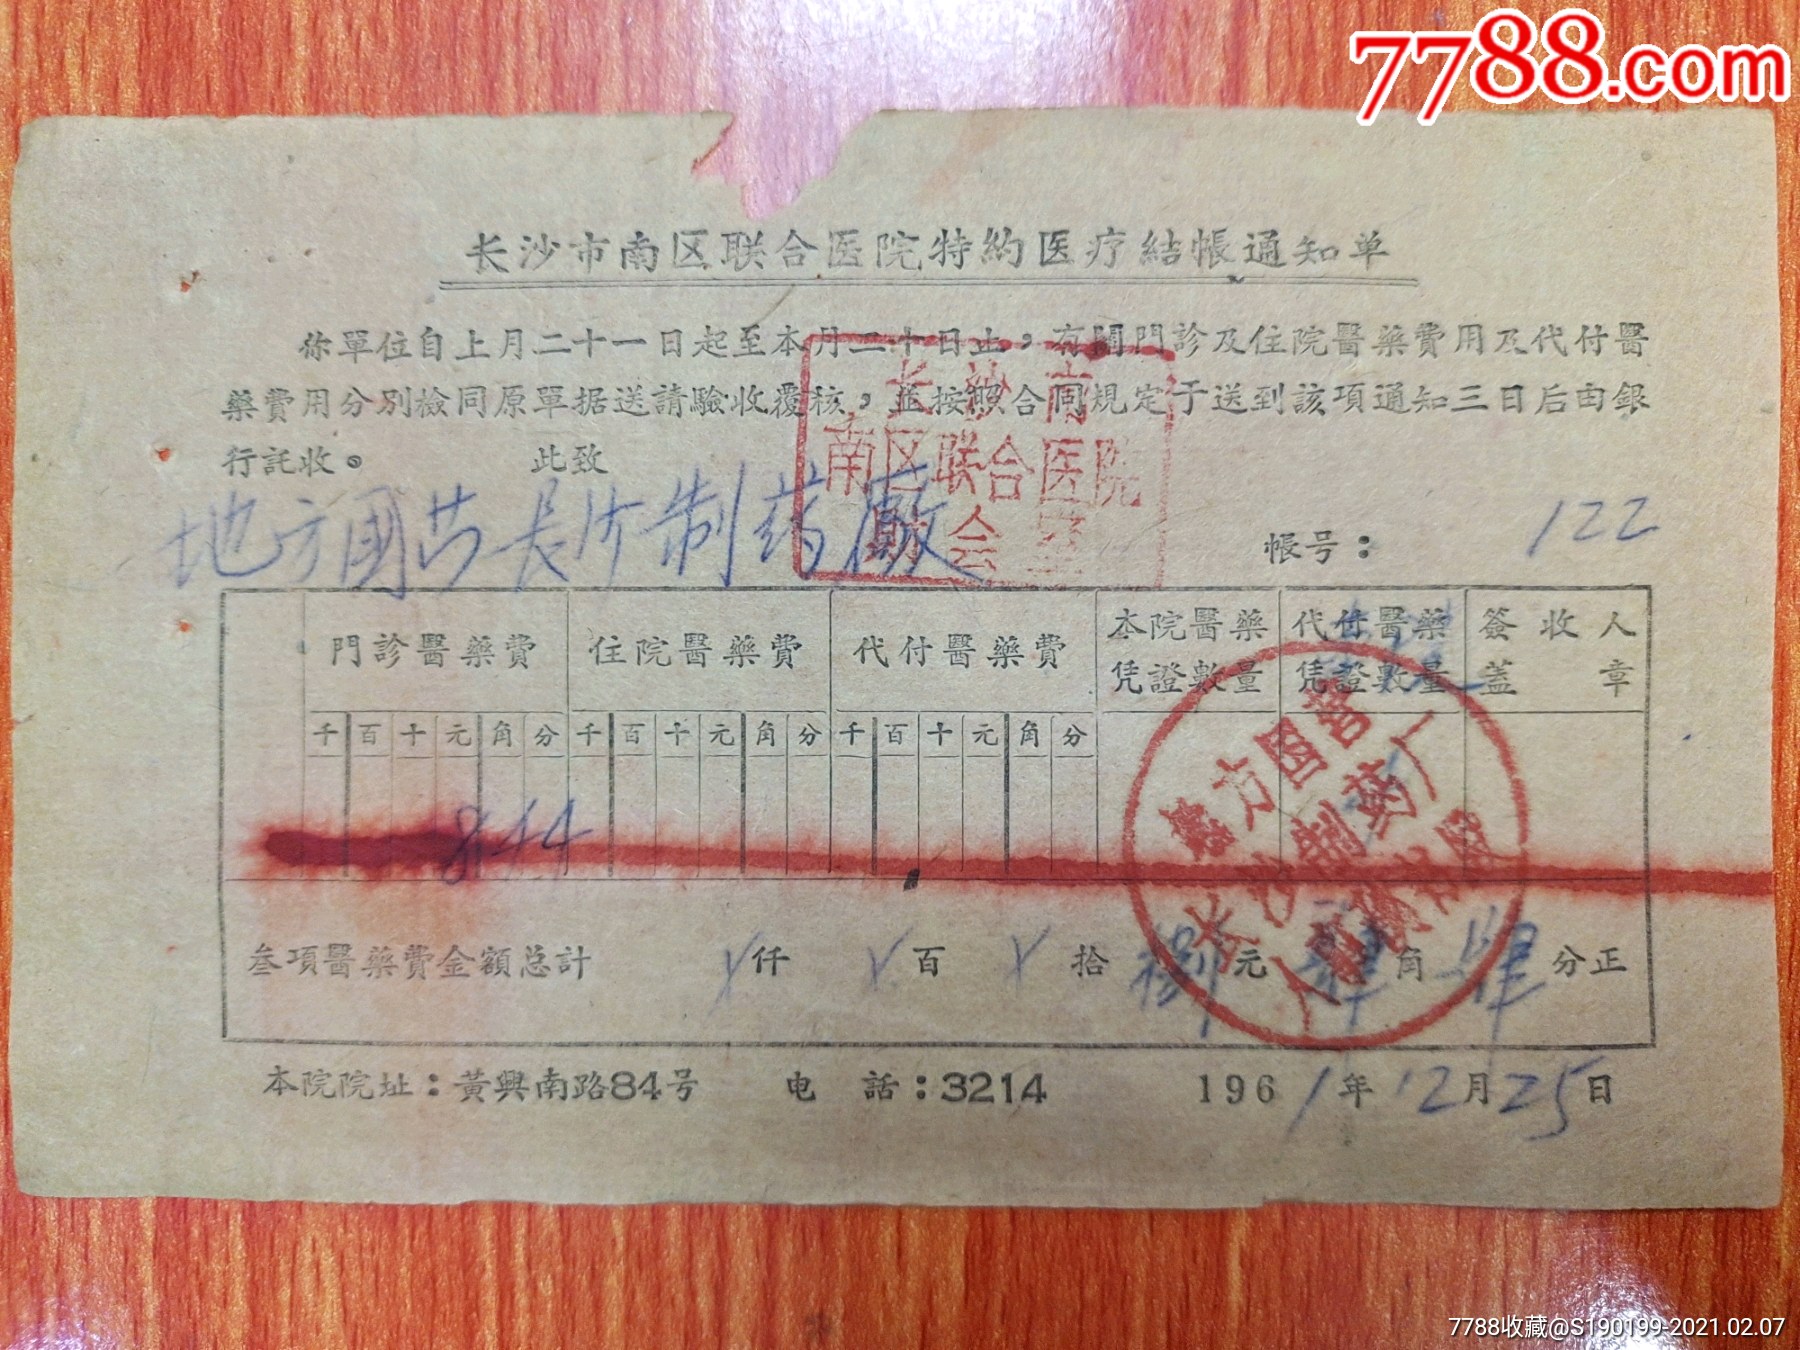 7788.com
长沙市南区联合医院特約医疗結帳通知单
你單位自上月二十一日起至本月二十日止，有關門診及住院醫藥費用及代付醫
藥費用分别檢同原單据送請驗收覆核，並按照合同規定于送到該項通知三日后由銀
行託收。 此致
长沙市
南区联合医院
地方國营長沙制药廠
帳号： 122
門診醫藥費 住院醫藥費 代付醫藥費 本院醫藥凭證數量 代付醫藥凭證數量 簽收人蓋章
千 百 十 元 角 分 千 百 十 元 角 分 千 百 十 元 角 分
8 4 4
地方国营
长沙制药厂
叁項醫藥費金額总計 仟 百 拾 捌元 肆角 肆分正
本院院址：黃興南路84号 电 話：3214 1961年12月25日
7788收藏@S190199-2021.02.07